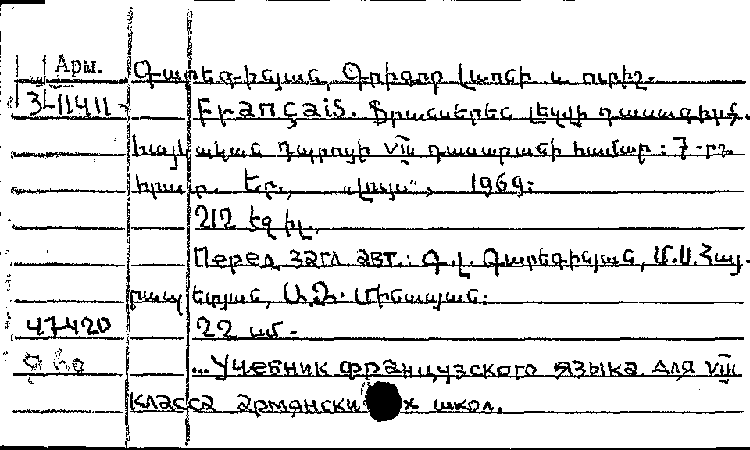 Арм. Գարեգինյան, Գրիգոր Լևոնի և ուրիշ.
3-11411 Français. Ֆրանսերեն լեզվի դասագիրք.
հայկական դպրոցի VIII դասարանի համար: 7-րդ
հրատ. Եր., «Լույս», 1969:
212 էջ իլ.
Перед загл. авт.: Գ.Լ. Գարեգինյան, Մ.Ս. Հայ-
րապետյան, Ա.Զ. Մինասյան:
47420 22 սմ -
...Учебник французского языка для VIII
класса армянских школ.